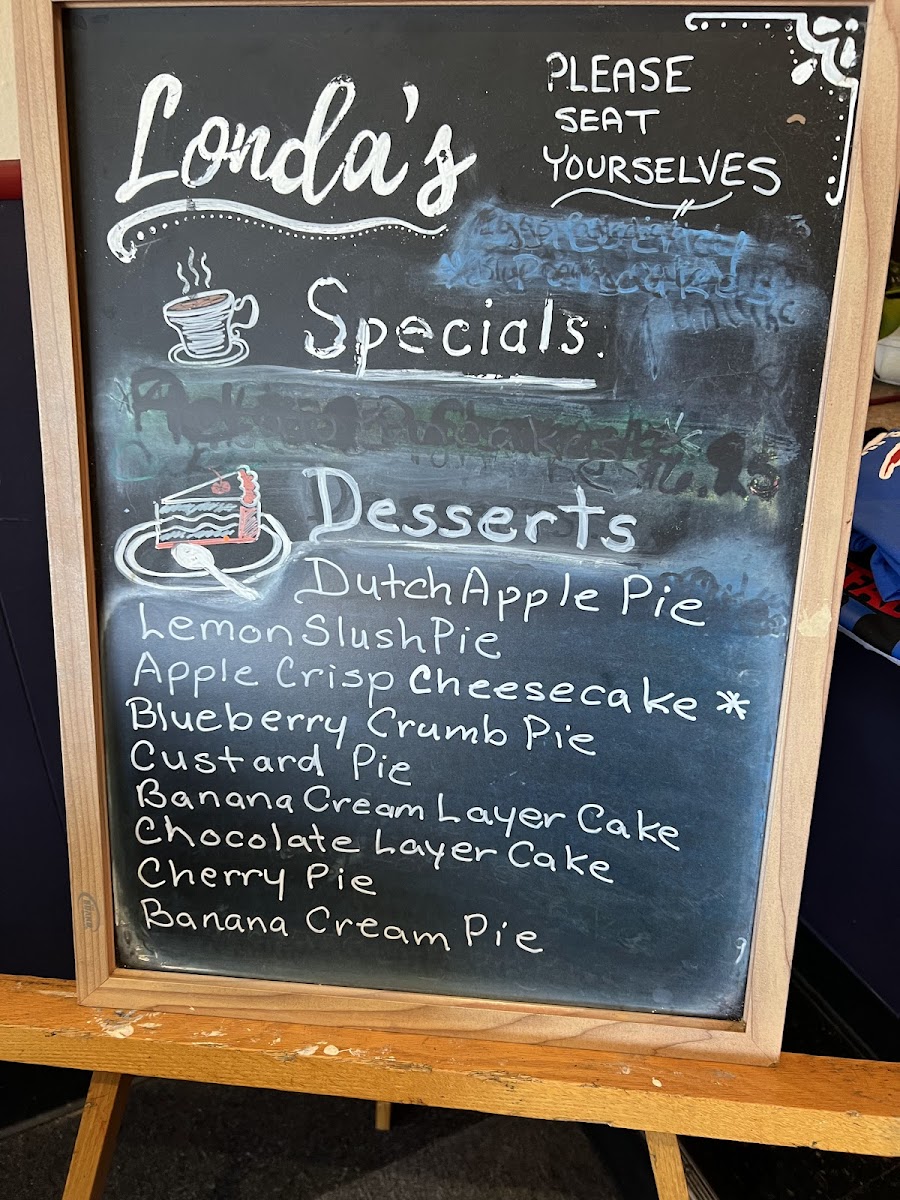 Londa's
PLEASE
SEAT
YOURSELVES
Specials
Desserts
Dutch Apple Pie
Lemon Slush Pie
Apple Crisp Cheesecake *
Blueberry Crumb Pie
Custard Pie
Banana Cream Layer Cake
Chocolate Layer Cake
Cherry Pie
Banana Cream Pie